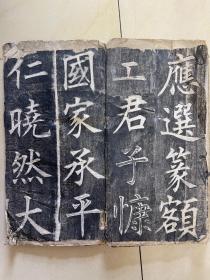 應選篆額
工君子
國家承平
仁曉然大